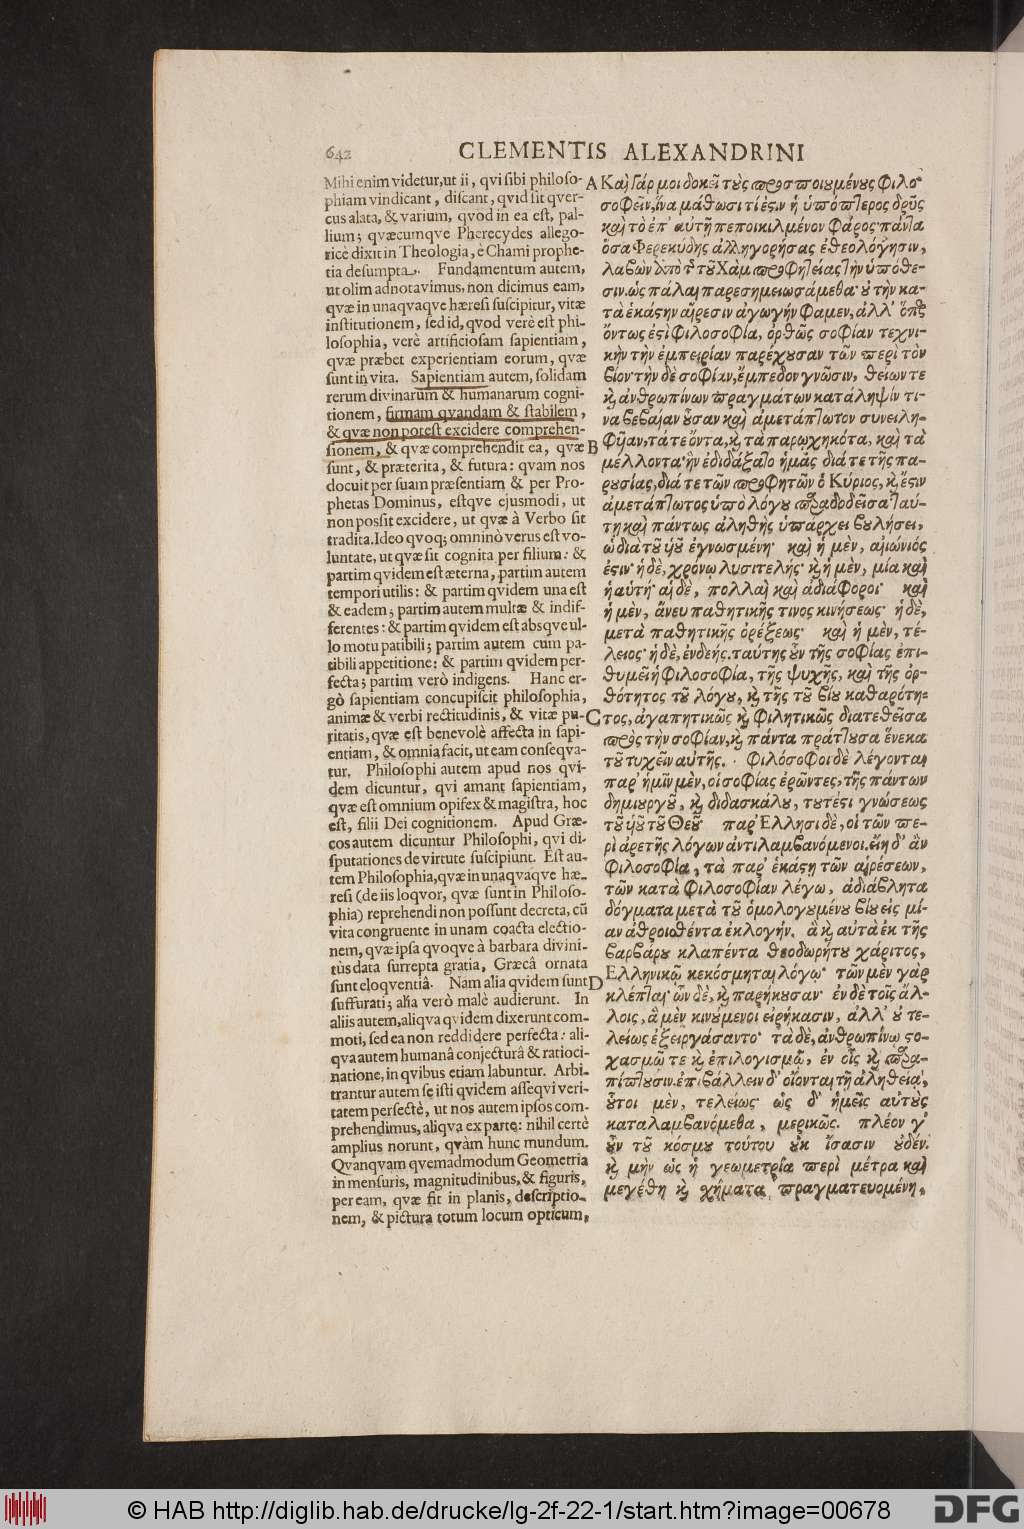 642
CLEMENTIS ALEXANDRINI
Mihi enim videtur, ut ii, qvi sibi philoso-
phiam vindicant, discant, qvid sit qver-
cus alata, & varium, qvod in ea est, pal-
lium; qvæcumqve Pherecydes allego-
ricè dixit in Theologia, è Chami prophe-
tia desumpta. Fundamentum autem,
ut olim adnotavimus, non dicimus eam,
qvæ in unaqvaqve hæresi suscipitur, vitæ
institutionem, sed id, qvod verè est phi-
losophia, verè artificiosam sapientiam,
qvæ præbet experientiam eorum, qvæ
sunt in vita. Sapientiam autem, solidam
rerum divinarum & humanarum cogni-
tionem, firmam qvandam & stabilem,
& qvæ non potest excidere comprehen-
sionem, & qvæ comprehendit ea, qvæ
sunt, & præterita, & futura: qvam nos
docuit per suam præsentiam & per Pro-
phetas Dominus, estqve ejusmodi, ut
non possit excidere, ut qvæ à Verbo sit
tradita. Ideo qvoq; omninò verus est vo-
luntate, ut qvæ sit cognita per filium: &
partim qvidem est æterna, partim autem
tempori utilis: & partim qvidem una est
& eadem; partim autem multæ & indif-
ferentes: & partim qvidem est absqve ul-
lo motu patibili; partim autem cum pa-
tibili appetitione: & partim qvidem per-
fecta; partim verò indigens. Hanc er-
gò sapientiam concupiscit philosophia,
animæ & verbi rectitudinis, & vitæ pu-
ritatis, qvæ est benevolè affecta in sapi-
entiam, & omnia facit, ut eam conseqva-
tur. Philosophi autem apud nos qvi-
dem dicuntur, qvi amant sapientiam,
qvæ est omnium opifex & magistra, hoc
est, filii Dei cognitionem. Apud Græ-
cos autem dicuntur Philosophi, qvi di-
sputationes de virtute suscipiunt. Est au-
tem Philosophia, qvæ in unaqvaqve hæ-
resi (de iis loqvor, qvæ sunt in Philoso-
phia) reprehendi non possunt decreta, cũ
vita congruente in unam coacta electio-
nem, qvæ ipsa qvoqve à barbara divini-
tùs data surrepta gratia, Græcâ ornata
sunt eloqventiâ. Nam alia qvidem sunt
suffurati; alia verò malè audierunt. In
aliis autem, aliqva qvidem dixerunt com-
moti, sed ea non reddidere perfecta: ali-
qva autem humanâ conjecturâ & ratioci-
natione, in qvibus etiam labuntur. Arbi-
trantur autem se isti qvidem asseqvi veri-
tatem perfectè, ut nos autem ipsos com-
prehendimus, aliqva ex parte: nihil certè
amplius norunt, qvàm hunc mundum.
Qvanqvam qvemadmodum Geometria
in mensuris, magnitudinibus, & figuris,
per eam, qvæ fit in planis, descriptio-
nem, & pictura totum locum opticum,
A Καὶ γάρ μοι δοκεῖ τοὺς προσποιουμένους φιλο-
σοφεῖν, ἵνα μάθωσι τί ἐστιν ἡ ὑπόπτερος δρῦς
καὶ τὸ ἐπ' αὐτῇ πεποικιλμένον φάρος· πάντα
ὅσα Φερεκύδης ἀλληγορήσας ἐθεολόγησιν,
λαβὼν ἀπὸ τῆς τοῦ Χὰμ προφητείας τὴν ὑπόθε-
σιν. ὡς πάλαι παρεσημειωσάμεθα· οὐ τὴν κα-
τὰ ἑκάστην αἵρεσιν ἀγωγήν φαμεν, ἀλλ' ὅπερ
ὄντως ἐστὶ φιλοσοφία, ὀρθῶς σοφίαν τεχνι-
κὴν τὴν ἐμπειρίαν παρέχουσαν τῶν περὶ τὸν
βίον· τὴν δὲ σοφίαν, ἔμπεδον γνῶσιν, θείων τε
καὶ ἀνθρωπίνων πραγμάτων κατάληψίν τι-
να βεβαίαν οὖσαν καὶ ἀμετάπτωτον συνειλη-
B φυῖαν, τά τε ὄντα, καὶ τὰ παρωχηκότα, καὶ τὰ
μέλλοντα· ἣν ἐδιδάξατο ἡμᾶς διά τε τῆς πα-
ρουσίας, διά τε τῶν προφητῶν ὁ Κύριος, καὶ ἔστιν
ἀμετάπτωτος ὑπὸ λόγου παραδοθεῖσα· ταύ-
τῃ καὶ πάντως ἀληθὴς ὑπάρχει βουλήσει,
ὡ διὰ τοῦ υἱοῦ ἐγνωσμένη· καὶ ἡ μὲν, αἰώνιός
ἐστιν· ἡ δὲ, χρόνῳ λυσιτελής· καὶ ἡ μὲν, μία καὶ
ἡ αὐτή· αἱ δὲ, πολλαὶ καὶ ἀδιάφοροι· καὶ
ἡ μὲν, ἄνευ παθητικῆς τινος κινήσεως· ἡ δὲ,
μετὰ παθητικῆς ὀρέξεως· καὶ ἡ μὲν, τέ-
λειος· ἡ δὲ, ἐνδεής. ταύτης οὖν τῆς σοφίας ἐπι-
θυμεῖ ἡ φιλοσοφία, τῆς ψυχῆς, καὶ τῆς ὀρ-
θότητος τοῦ λόγου, καὶ τῆς τοῦ βίου καθαρότη-
C τος, ἀγαπητικῶς καὶ φιλητικῶς διατεθεῖσα
πρὸς τὴν σοφίαν, καὶ πάντα πράττουσα ἕνεκα
τοῦ τυχεῖν αὐτῆς. Φιλόσοφοι δὲ λέγονται
παρ' ἡμῖν μὲν, οἱ σοφίας ἐρῶντες, τῆς πάντων
δημιουργοῦ, καὶ διδασκάλου, τουτέστι γνώσεως
τοῦ υἱοῦ τοῦ Θεοῦ παρ' Ἕλλησι δὲ, οἱ τῶν πε-
ρὶ ἀρετῆς λόγων ἀντιλαμβανόμενοι. εἴη δ' ἂν
φιλοσοφία, τὰ παρ' ἑκάστῃ τῶν αἱρέσεων,
τῶν κατὰ φιλοσοφίαν λέγω, ἀδιάβλητα
δόγματα μετὰ τοῦ ὁμολογουμένου βίου εἰς μί-
αν ἀθροισθέντα ἐκλογήν. ἃ καὶ αὐτὰ ἐκ τῆς
βαρβάρου κλαπέντα θεοδωρήτου χάριτος,
Ἑλληνικῷ κεκόσμηται λόγῳ· τῶν μὲν γὰρ
D κλέπται· ὧν δὲ, καὶ παρήκουσαν· ἐν δὲ τοῖς ἄλ-
λοις, ἃ μὲν κινούμενοι εἰρήκασιν, ἀλλ' οὐ τε-
λείως ἐξειργάσαντο· τὰ δὲ, ἀνθρωπίνῳ στο-
χασμῷ τε καὶ ἐπιλογισμῷ, ἐν οἷς καὶ παρα-
πίπτουσιν. ἐπιβάλλειν δ' οἴονται τῇ ἀληθείᾳ,
οὗτοι μὲν, τελείως· ὡς δ' ἡμεῖς αὐτοὺς
καταλαμβανόμεθα, μερικῶς. πλέον γ'
οὖν τοῦ κόσμου τούτου οὐκ ἴσασιν οὐδέν.
καὶ μὴν ὡς ἡ γεωμετρία περὶ μέτρα καὶ
μεγέθη καὶ χήματα πραγματευομένη,
© HAB http://diglib.hab.de/drucke/lg-2f-22-1/start.htm?image=00678
DFG